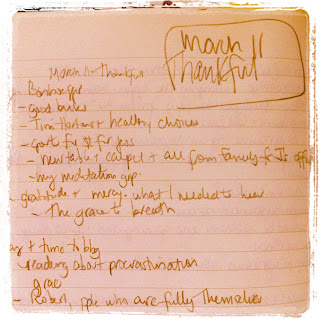 March 11
Thankful
March 11 - Thankful
- good
- Tim Hortons + healthy choices
- for $1 for Jess
- new table + carpet + all from
- my meditation
- gratitude + mercy. what I needed to hear
- The grace to breath
+ time to blog
- reading about procrastination
grac
- Robert, pple who are fully Themselves